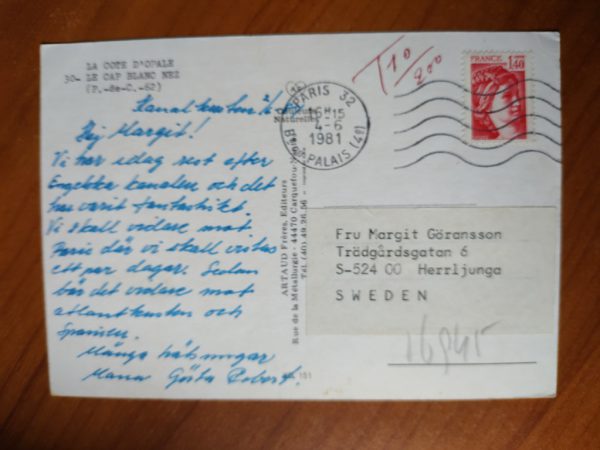 LA COTE D'OPALE
30- LE CAP BLANC NEZ
(P.-de-C.-62)
Kanalkusten
Hej Margit!
Vi har idag rest efter
Engelska kanalen och det
har varit fantastiskt.
Vi skall vidare mot
Paris där vi skall vistas
ett par dagar. Sedan
bär det vidare mot
atlantkusten och
Spanien.
Många hälsningar
Mana Gösta Robert.
Naturelles
ARTAUD Frères, Editeurs
Rue de la Métallurgie - 44470 Carquefou
Tél. (40) 49.26.56
T 10/200
PARIS 32
16H15
4-6
1981
PALAIS (4e)
FRANCE
1,40
Fru Margit Göransson
Trädgårdsgatan 6
S-524 00 Herrljunga
SWEDEN